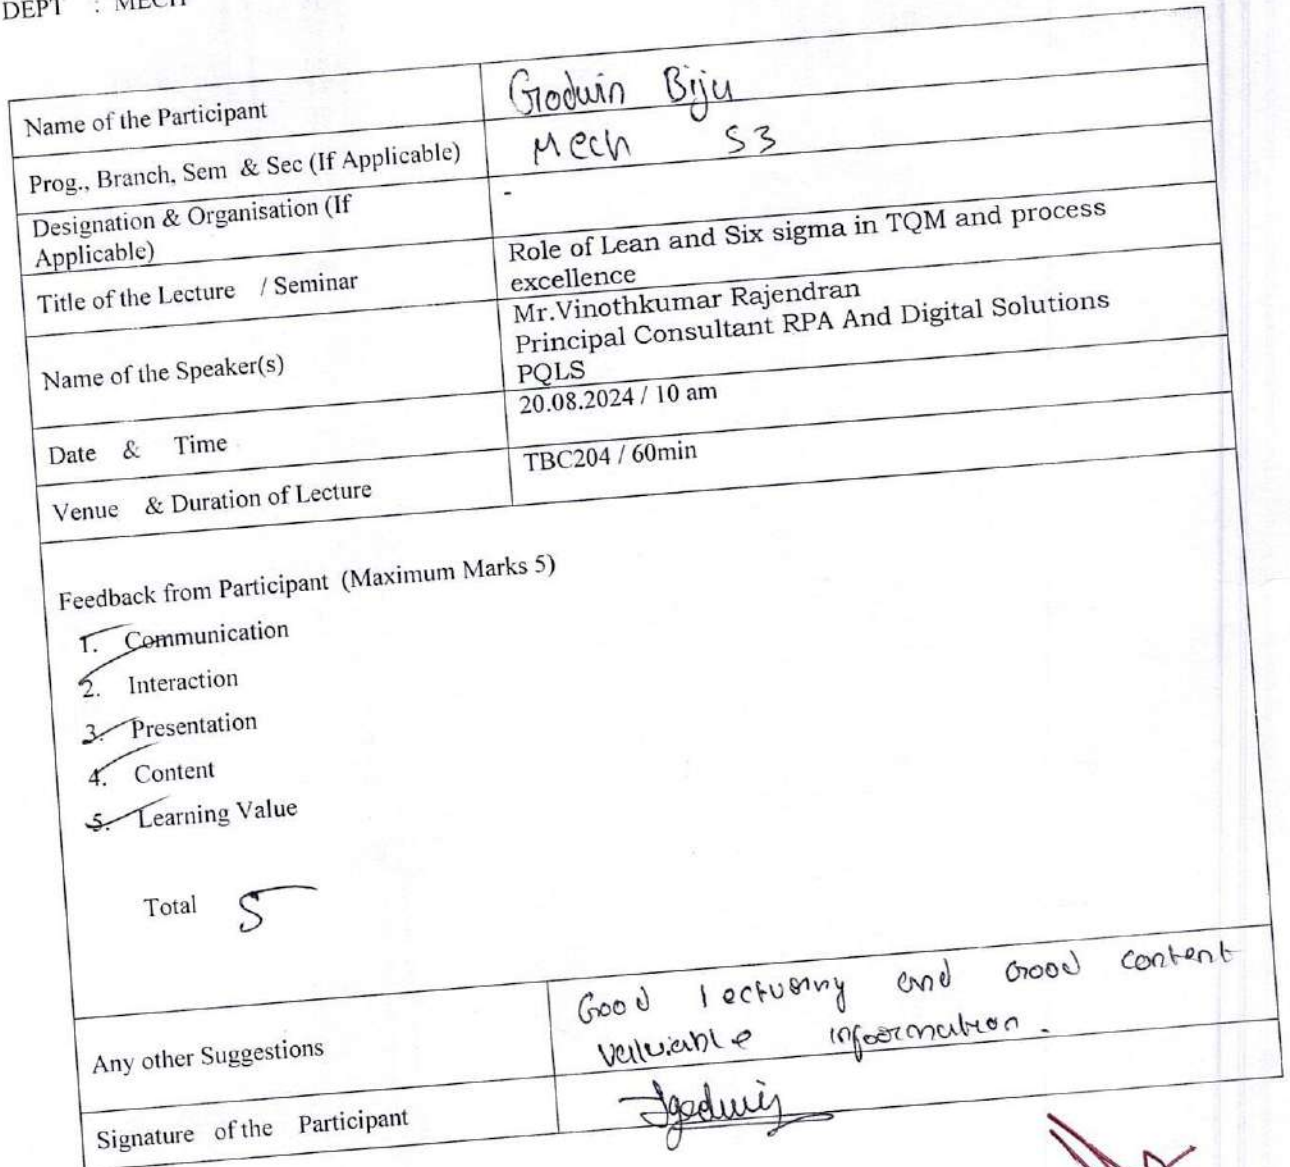 DEPT : MECH
Name of the Participant
Godwin Biju
Prog., Branch, Sem & Sec (If Applicable)
Mech S3
Designation & Organisation (If
Applicable)
-
Title of the Lecture / Seminar
Role of Lean and Six sigma in TQM and process
excellence
Name of the Speaker(s)
Mr.Vinothkumar Rajendran
Principal Consultant RPA And Digital Solutions
PQLS
Date & Time
20.08.2024 / 10 am
Venue & Duration of Lecture
TBC204 / 60min
Feedback from Participant (Maximum Marks 5)
1. Communication
2. Interaction
3. Presentation
4. Content
5. Learning Value
Total 5
Any other Suggestions
Good lecturing and Good content
valuable information.
Signature of the Participant